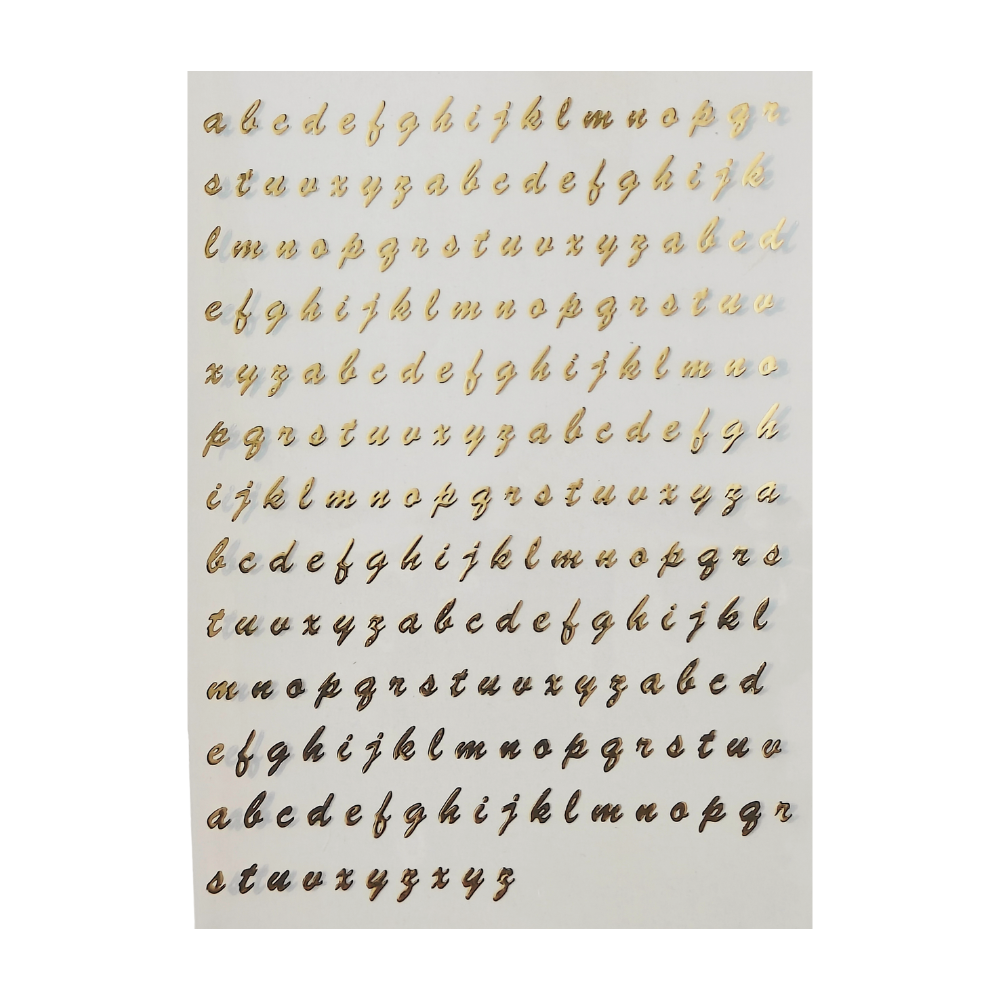 a b c d e f g h i j k l m n o p q r
s t u v x y z a b c d e f g h i j k
l m n o p q r s t u v x y z a b c d
e f g h i j k l m n o p q r s t u v
x y z a b c d e f g h i j k l m n o
p q r s t u v x y z a b c d e f g h
i j k l m n o p q r s t u v x y z a
b c d e f g h i j k l m n o p q r s
t u v x y z a b c d e f g h i j k l
m n o p q r s t u v x y z a b c d
e f g h i j k l m n o p q r s t u v
a b c d e f g h i j k l m n o p q r
s t u v x y z x y z